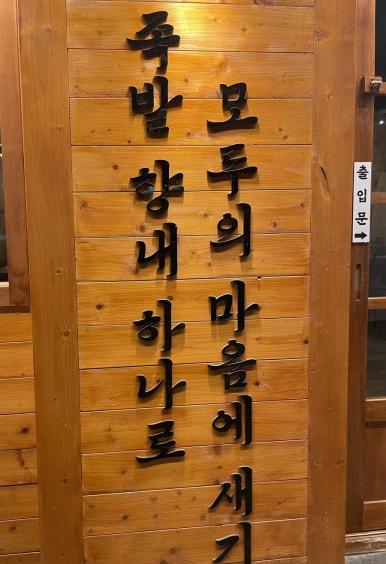 족발 향내 하나로
모두의 마음에 새기
출입문 →